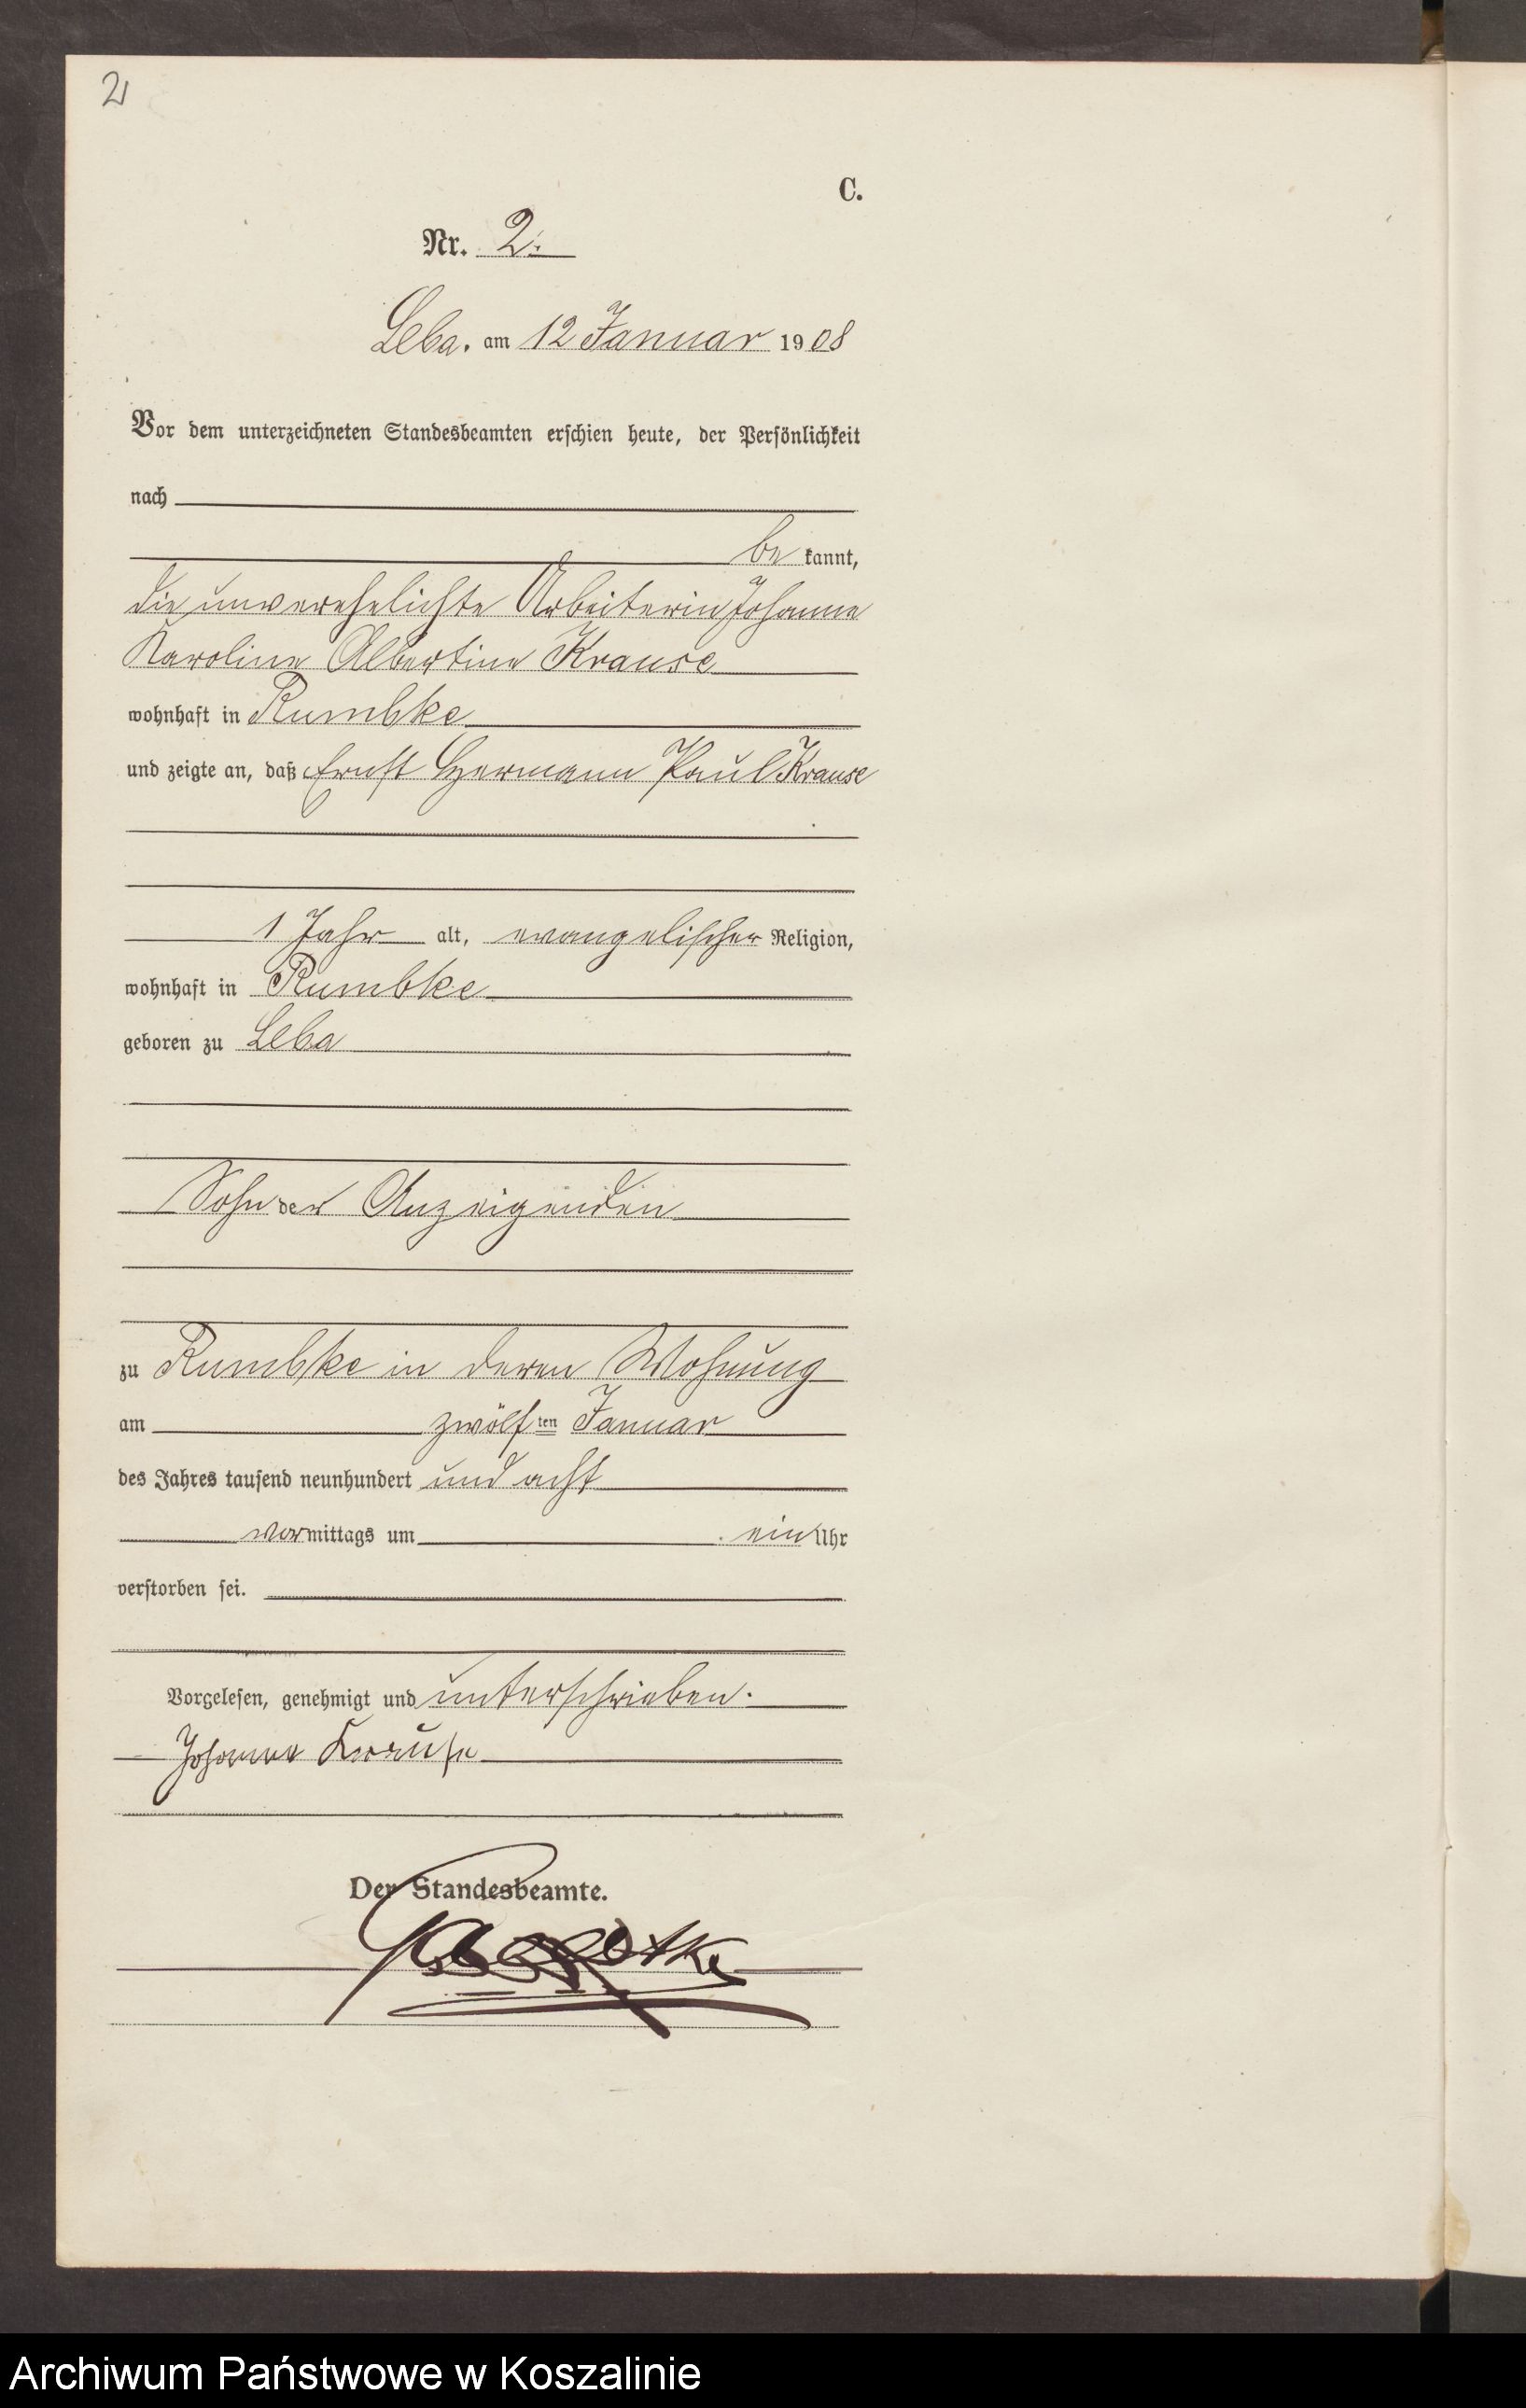 2
C.
Nr. 2.
Leba. am 12 Januar 1908
Vor dem unterzeichneten Standesbeamten erschien heute, der Persönlichkeit
nach
be kannt,
die unverehelichte Arbeiterin Johanne
Karoline Albertine Krause
wohnhaft in Rumbke
und zeigte an, daß Ernst Hermann Paul Krause
1 Jahr alt, evangelischer Religion,
wohnhaft in Rumbke
geboren zu Leba
Sohn der Anzeigenden
zu Rumbke in deren Wohnung
am zwölften Januar
des Jahres tausend neunhundert und acht
vormittags um ein Uhr
verstorben sei.
Vorgelesen, genehmigt und unterschrieben.
Johanne Krause
Der Standesbeamte.
Archiwum Państwowe w Koszalinie